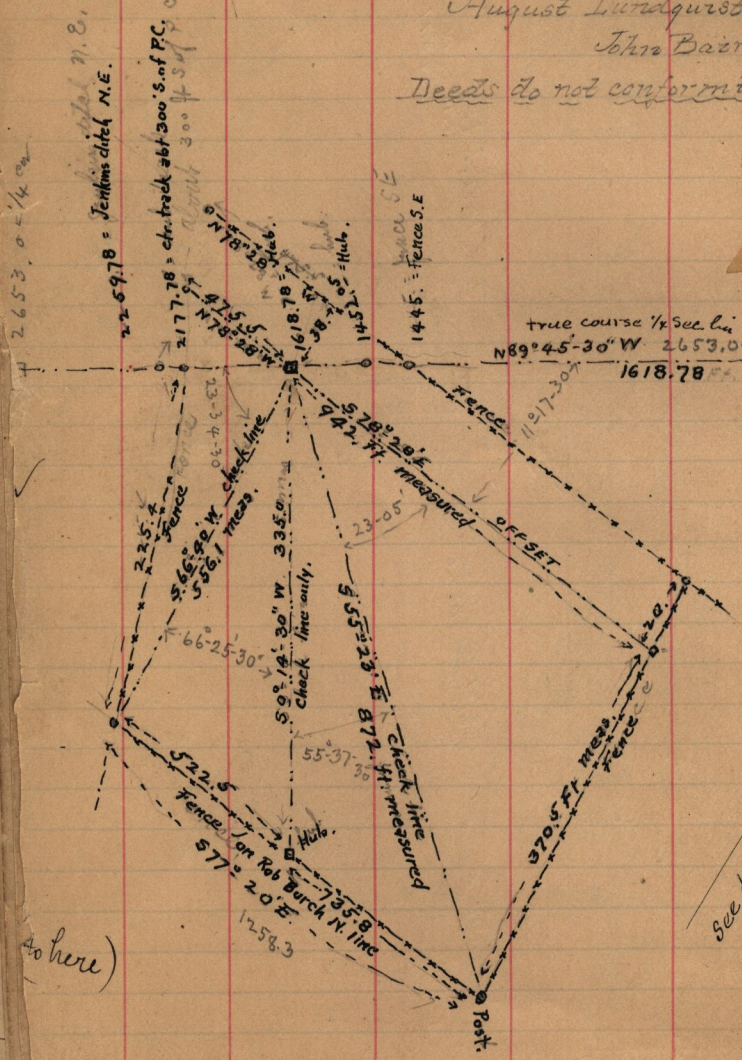 August Lundquist
John Barr
Deeds do not conform
2653.0 = 1/4 cor
2259.78 = Jenkins ditch N.E.
2177.78 = ctr. track abt 300' S. of P.C.
N 78° 28'
Hub.
475.5
N 78° 28' W
1618.78 =
38.
1452.05 = Hub.
1445. = Fence S.E
fence SE
true course 1/4 Sec lin
N 89° 45'-30" W 2653.0
1618.78 Ft.
Fence
11°-17-30
S 78° 28' E
942. ft. measured
OFFSET
23-34-30
225.4
Fence
S 66° 40' W check line
556.1 meas.
S 0° - 14' - 30" W 335.0
Check line only.
23-05'
S 55° 23' E 872. ft measured
check line
66°-25'-30"
55°-37-30
20.
370.5 Ft meas.
Fence
522.5
Hub.
735.8
Fence (on Rob Burch N. line
S 77° 20' E.
1258.3
Post.
to here)
See